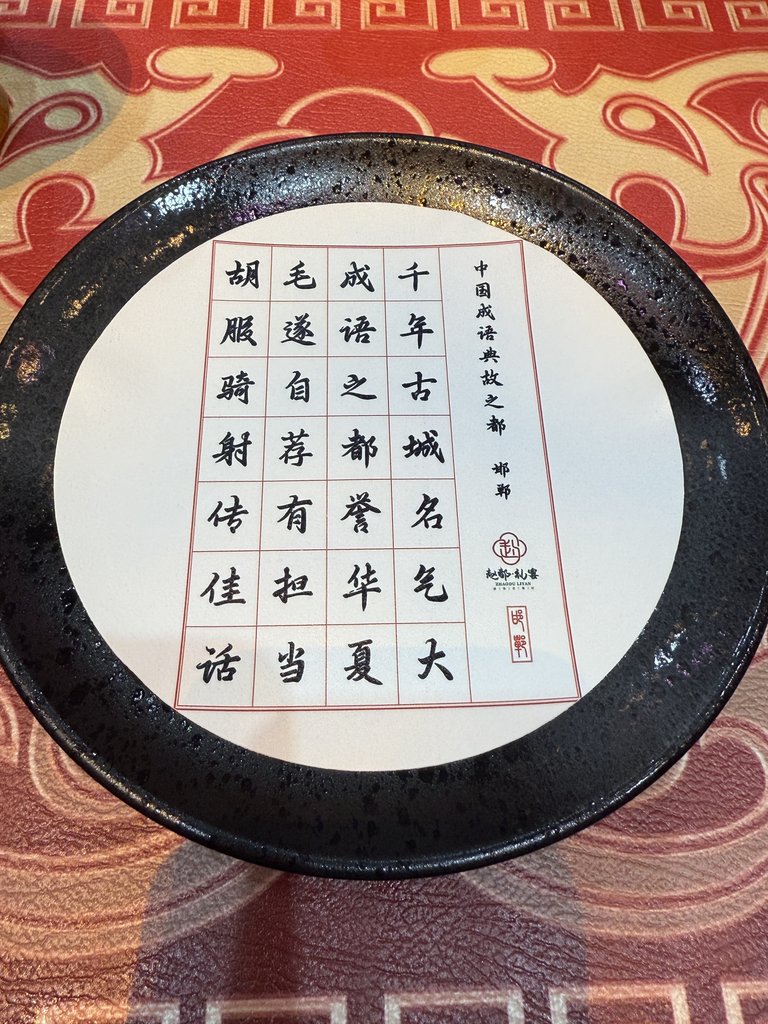 中国成语典故之都 邯郸
赵都·礼宴
ZHAODU LIYAN
邯郸
千年古城名气大
成语之都誉华夏
毛遂自荐有担当
胡服骑射传佳话